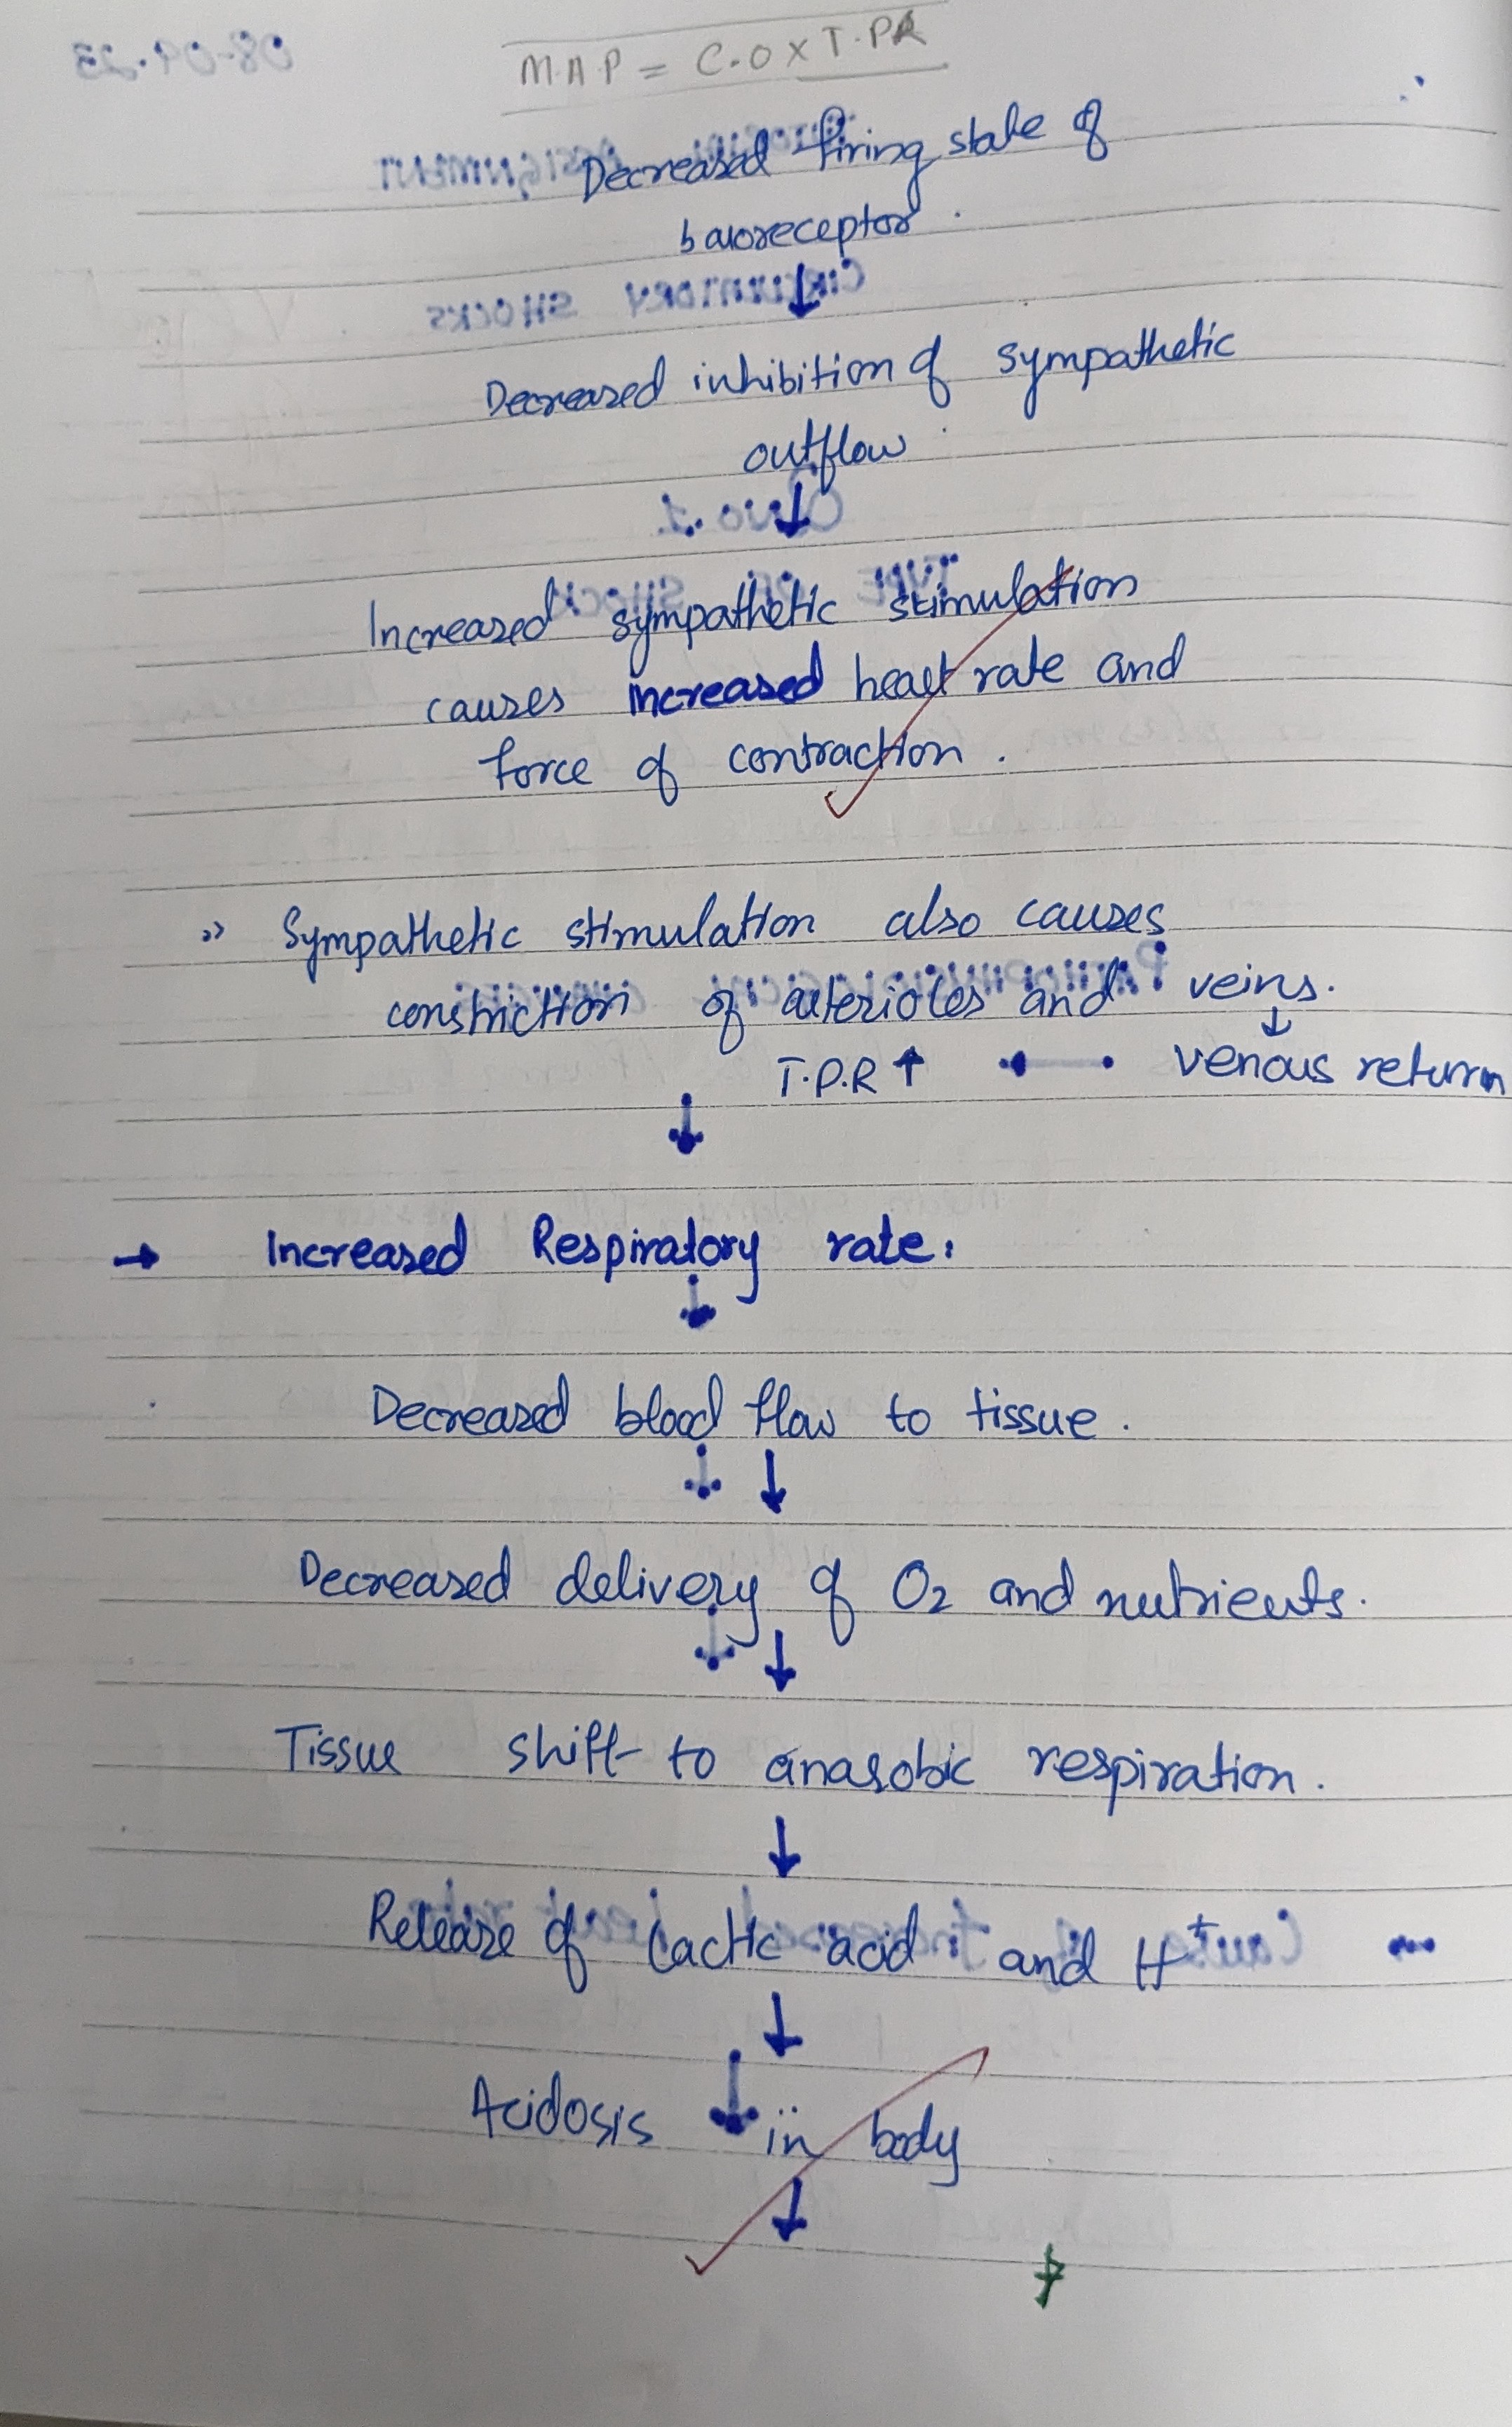 M.A.P = C.O x T.PR
Decreased firing state of
baroreceptor.
↓
Decreased inhibition of sympathetic
outflow
↓
Increased sympathetic stimulation
causes increased heart rate and
force of contraction.
Sympathetic stimulation also causes
constriction of arterioles and veins.
↓
T.P.R ↑ venous return
→ Increased Respiratory rate:
Decreased blood flow to tissue.
↓
Decreased delivery of O2 and nutrients.
↓
Tissue shift to anaerobic respiration.
↓
Release of Lactic acid and H+
↓
Acidosis in body
↓